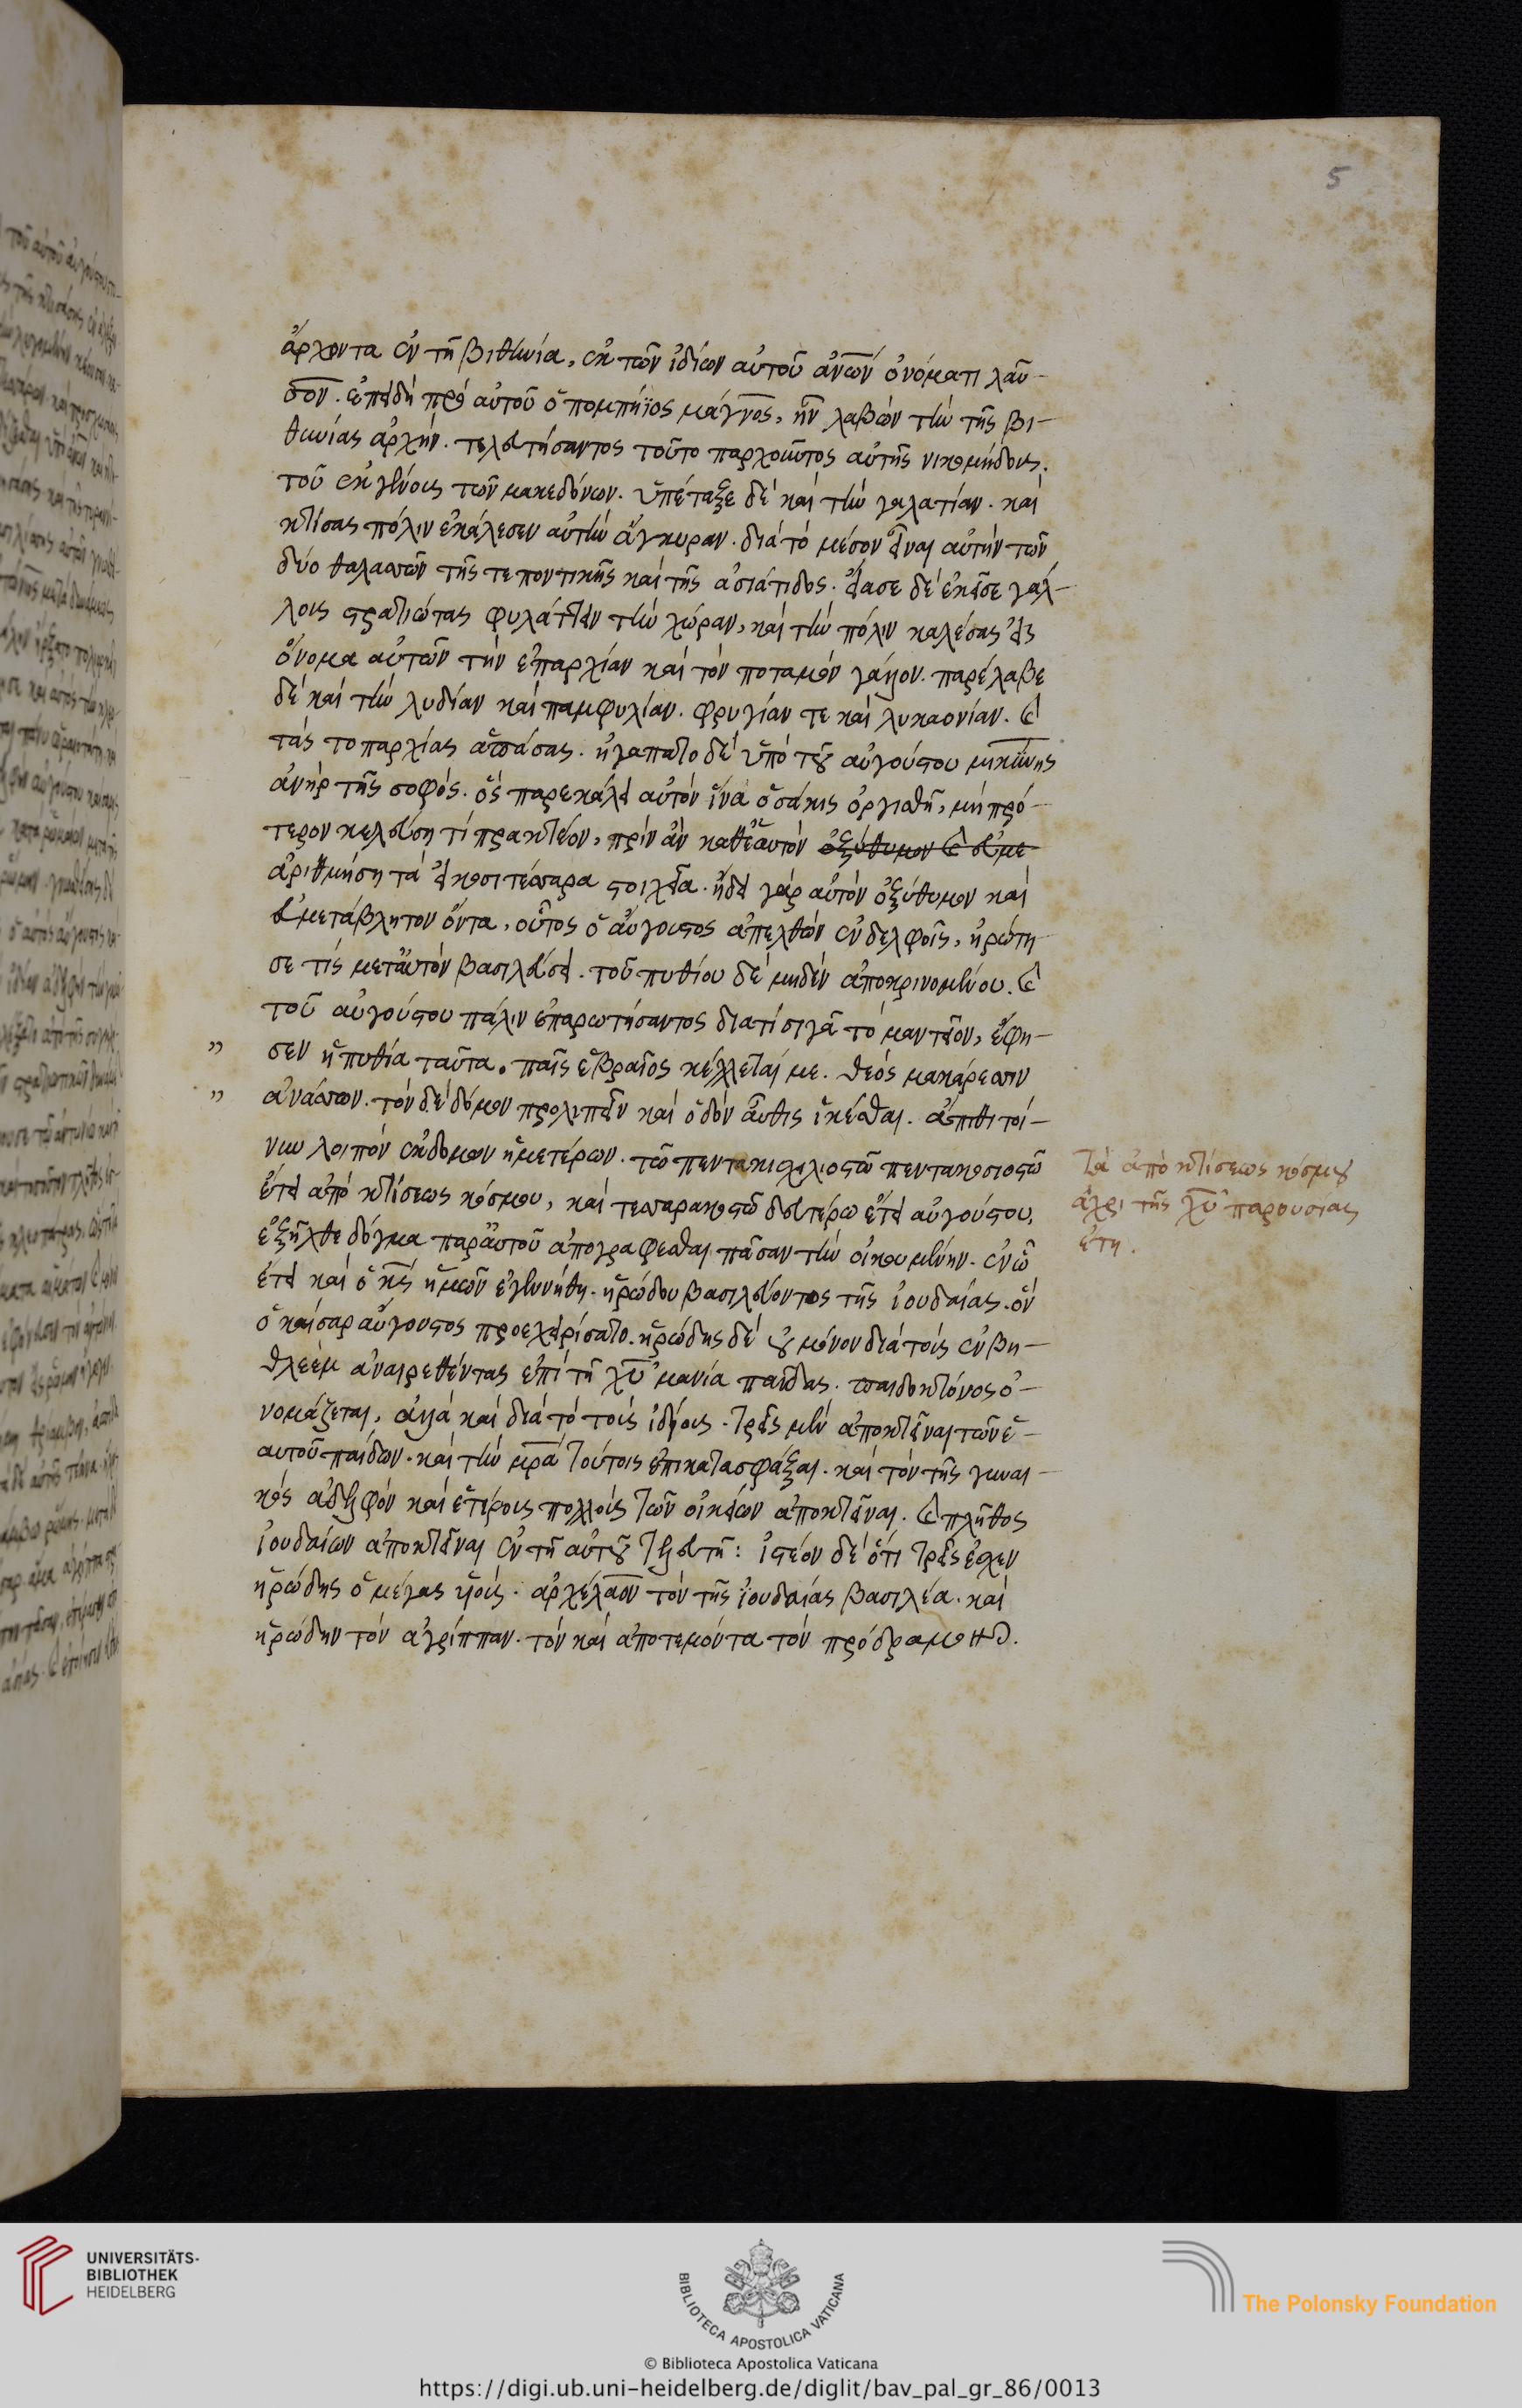 5
ἄρχοντα ἐν τῆ βιθυνία, ἐκ τῶν ἰδίων αὐτοῦ ἀν͞ων ὀνόματι λαῦ-
σον. ἐπειδὴ πρὸ αὐτοῦ ὁ πομπήϊος μάγνος, ἦν λαβὼν τὴν τῆς βι-
θυνίας ἀρχήν. τελευτήσαντος τοῦτο παρχοῦντος αὐτῆς νικομήδους.
τοῦ ἐκ γένους τῶν μακεδόνων. ὑπέταξε δὲ καὶ τὴν γαλατίαν. καὶ
κτίσας πόλιν ἐκάλεσεν αὐτὴν ἄγκυραν. διὰ τὸ μέσον εἶναι αὐτὴν τῶν
δύο θαλασσῶν τῆς τε ποντικῆς καὶ τῆς ἀσιάτιδος. εἴασε δὲ ἐκεῖσε γάλ-
λους στρατιώτας φυλάττειν τὴν χώραν, καὶ τὴν πόλιν καλέσας εἰς
ὄνομα αὐτῶν τὴν ἐπαρχίαν καὶ τὸν ποταμὸν γάλλον. παρέλαβε
δὲ καὶ τὴν λυδίαν καὶ παμφυλίαν. φρυγίαν τε καὶ λυκαονίαν. καὶ
τὰς τοπαρχίας ἁπάσας. ἠγαπᾶτο δὲ ὑπὸ τοῦ αὐγούστου
ἀνήρ τῆς σοφός. ὃς παρεκάλει αὐτὸν ἵνα ὁσάκις ὀργισθῆ, μὴ πρό-
τερον κελεύση τί πρακτέον, πρὶν ἂν καθ' ἑαυτὸν ὀξύθυμον καὶ εὐμε
ἀριθμήση τὰ εἰκοσιτέσσαρα στοιχεῖα. ἤδει γὰρ αὐτὸν ὀξύθυμον καὶ
εὐμετάβλητον ὄντα, οὗτος ὁ αὔγουστος ἀπελθὼν ἐν δελφοῖς, ἠρώτη
σε τίς μετ' αὐτὸν βασιλεύσει. τοῦ πυθίου δὲ μηδὲν ἀποκρινομένου. καὶ
τοῦ αὐγούστου πάλιν ἐπαρωτήσαντος διατί σιγᾶ τὸ μαντεῖον, ἔφη-
" σεν ἡ πυθία ταῦτα. παῖς ἑβραῖος κέλλεταί με. θεὸς μακάρεσσιν
" ἀνάσσων. τὸν δὲ δόμον προλιπεῖν καὶ ὁδὸν αὖθις ἱκέσθαι. ἄπιθι τοί-
νυν λοιπὸν ἐκ δομον ἡμετέρων. τῶ πεντακισχιλιοστῶ πεντακοσιοστῶ
ἔτει ἀπὸ κτίσεως κόσμου, καὶ τεσσαρακοστῶ δευτέρω ἔτει αὐγούστου,
ἐξῆλθε δόγμα παρ' αὐτοῦ ἀπογραφεσθαι πᾶσαν τὴν οἰκουμένην. ἐν ὧ
ἔτει καὶ ὁ κ͞ς ἡμῶν ἐγεννήθη. ἡρώδου βασιλεύοντος τῆς ἰουδαίας. ὃν
ὁ καίσαρ αὔγουστος προεχειρίσατο. ἡρώδης δὲ οὐ μόνον διὰ τοὺς ἐν βη-
θλεὲμ ἀναιρεθέντας ἐπὶ τῆ χ͞υ μανία παῖδας. παιδοκτόνος ὀ-
νομάζεται, ἀλλὰ καὶ διὰ τὸ τοὺς ἰδίους. τρεῖς μὲν ἀποκτεῖναι τῶν ἑ-
αυτοῦ παίδων. καὶ τὴν μ͞ρα τούτοις ἐπικατασφάξαι. καὶ τὸν τῆς γυναι-
κὸς ἀδελφὸν καὶ ἑτέρους πολλοὺς τῶν οἰκείων ἀποκτεῖναι. καὶ πλῆθος
ἰουδαίων ἀποκτεῖναι ἐν τῆ αὐτοῦ τελευτῆ: ἰστέον δὲ ὅτι τρεῖς ἔσχεν
ἡρώδης ὁ μέγας υἱούς. ἀρχέλαον τὸν τῆς ἰουδαίας βασιλέα. καὶ
ἡρώδην τὸν ἀγρίππαν. τὸν καὶ ἀποτεμόντα τὸν πρόδραμον.
Τὰ ἀπὸ κτίσεως κόσμου
ἄχρι τῆς χ͞υ παρουσίας
ἔτη.
UNIVERSITÄTS-
BIBLIOTHEK
HEIDELBERG
BIBLIOTECA APOSTOLICA VATICANA
The Polonsky Foundation
© Biblioteca Apostolica Vaticana
https://digi.ub.uni-heidelberg.de/diglit/bav_pal_gr_86/0013